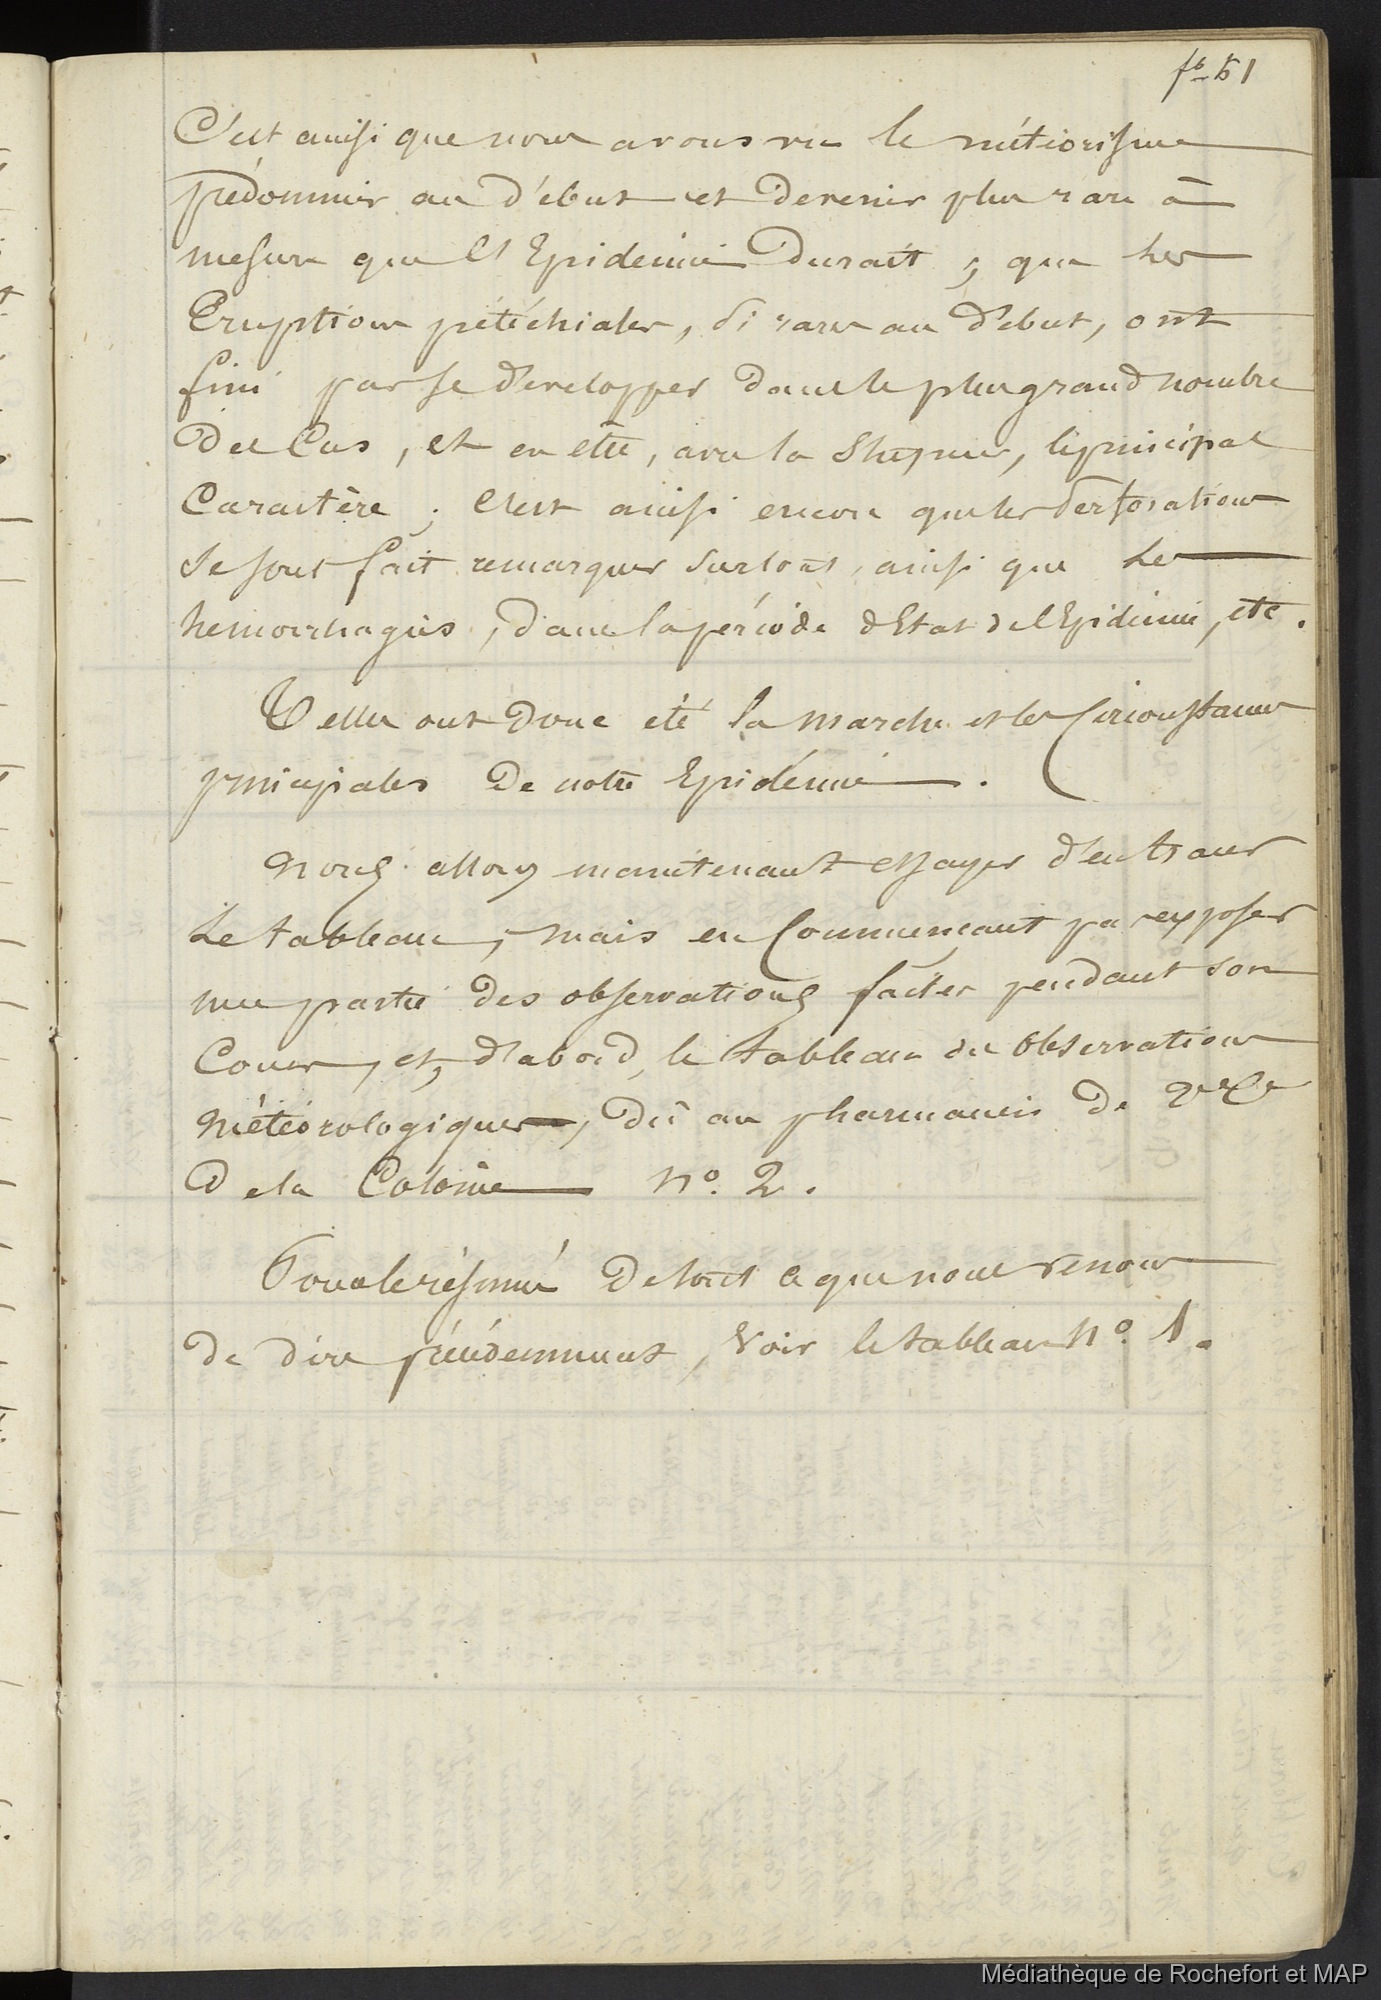 fo 51
C'est ainsi que nous avons vu le météorisme
prédominer au début et devenir plus rare à
mesure que l'Epidémie durait ; que les
Eruptions pétéchiales, si rares au début, ont
fini par se développer dans le plus grand nombre
des Cas, et en être, avec la Stupeur, le principal
Caractère ; C'est ainsi encore que les Perforations
se sont fait remarquer surtout, ainsi que les
hémorrhagies, dans la période d'Etat de l'Epidémie, etc.
Telles ont donc été la marche et les Circonstances
principales de notre Epidémie.
Nous allons maintenant essayer d'en tracer
le tableau, mais en Commençant par exposer
une partie des observations faites pendant son
Cours, et, d'abord, le tableau des Observations
Météorologiques, dû au pharmacien de 2e Cse
de la Colonie No. 2.
Pour le résumé de tout ce que nous venons
de dire précédemment, Voir le tableau No. 1.
Médiathèque de Rochefort et MAP